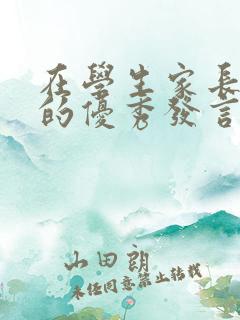 在學生家長
的優秀發言
山田朗
未經同意禁止轉載